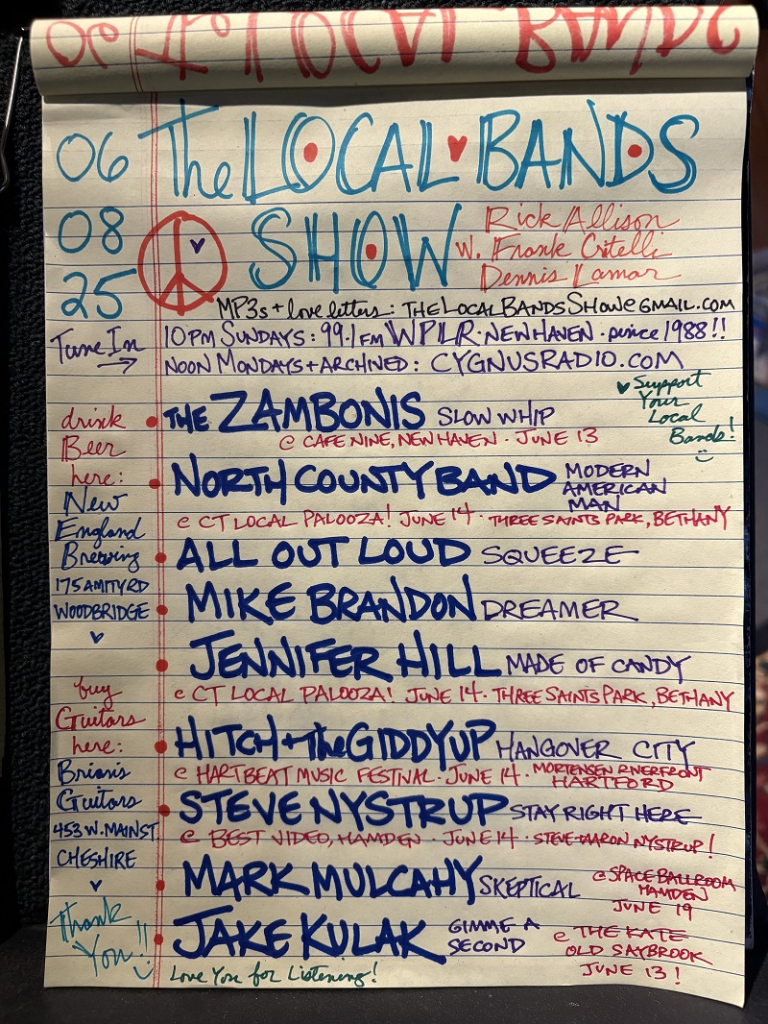 The LOCAL BANDS
SHOW
06
08
25
Rick Allison
w. Frank Critelli
Dennis Lamar
MP3s + love letters: THELOCALBANDSSHOW@GMAIL.COM
Tune In
10PM SUNDAYS: 99.1FM WPLR · NEW HAVEN · since 1988!!
NOON MONDAYS + ARCHIVED: CYGNUSRADIO.COM
Support
Your
Local
Bands!
THE ZAMBONIS SLOW WHIP
@ CAFE NINE, NEW HAVEN · JUNE 13
NORTH COUNTY BAND MODERN
AMERICAN
MAN
@ CT LOCAL PALOOZA! JUNE 14 · THREE SAINTS PARK, BETHANY
ALL OUT LOUD SQUEEZE
MIKE BRANDON DREAMER
JENNIFER HILL MADE OF CANDY
@ CT LOCAL PALOOZA! JUNE 14 · THREE SAINTS PARK, BETHANY
HITCH + The GIDDYUP HANGOVER CITY
@ HARTBEAT MUSIC FESTIVAL · JUNE 14 · MORTENSEN RIVERFRONT
HARTFORD
STEVE NYSTRUP STAY RIGHT HERE
@ BEST VIDEO, HAMDEN · JUNE 14 · STEVE-AARON NYSTRUP!
MARK MULCAHY SKEPTICAL
@ SPACE BALLROOM
HAMDEN
JUNE 19
JAKE KULAK GIMME A
SECOND
@ THE KATE
OLD SAYBROOK
JUNE 13!
Love You for Listening!
drink
Beer
here:
New
England
Brewing
175 AMITY RD
WOODBRIDGE
buy
Guitars
here:
Brian's
Guitars
453 W. MAIN ST.
CHESHIRE
Thank
You!!